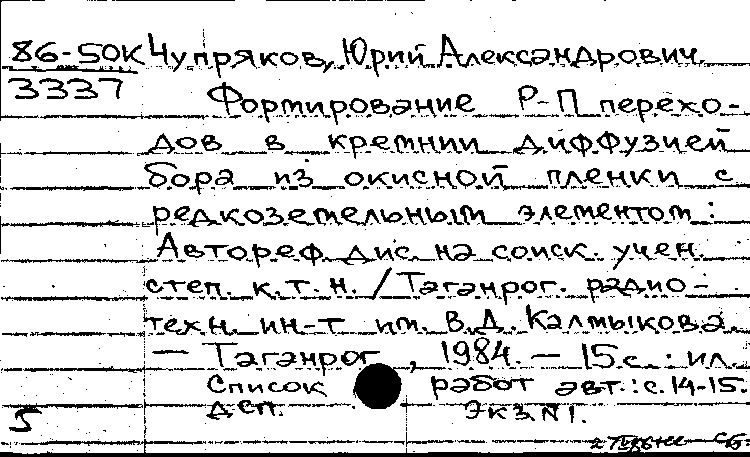 86-50К Чупряков, Юрий Александрович
3337
Формирование Р-П перехо-
дов в кремнии диффузией
бора из окисной пленки с
редкоземельным элементом:
Автореф. дис. на соиск. учен.
степ. к.т.н. / Таганрог. радио-
техн. ин-т им. В.Д. Калмыкова
— Таганрог, 1984. — 15 с.: ил.
Список работ авт.: с. 14-15.
дсп. Экз. N 1.
5